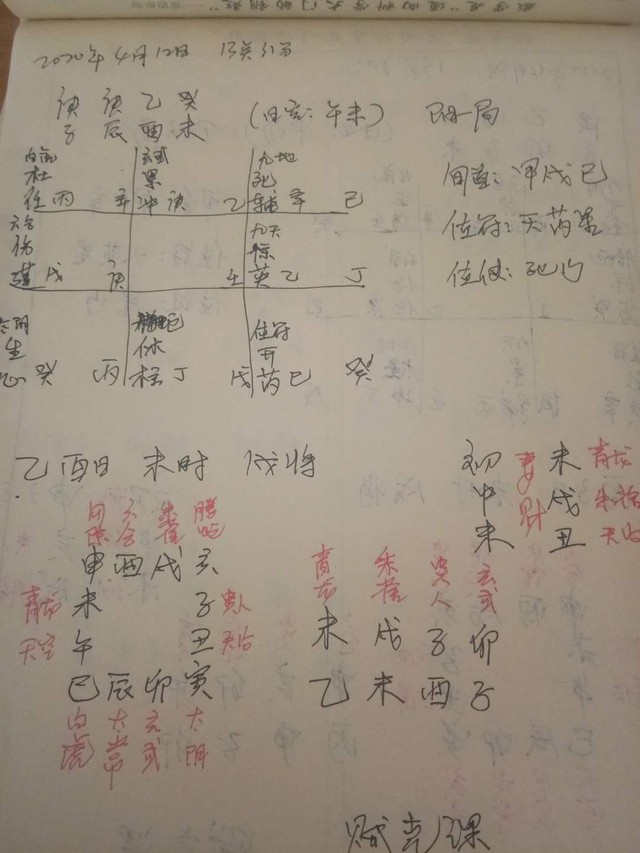 数学是“通向科学大门的钥匙”
2020年4月12日
庚 庚 乙 癸
子 辰 酉 未
(日空:午未)
阳一局
旬首:甲戌己
值符:天芮星
值使:死门
玄武
九地
杜
景
死
任 丙
辛 冲 庚
乙 辅 辛
己
六合
九天
伤
惊
蓬 戊
庚
壬 英 乙
丁
太阴
值符
生
休
开
心 癸
丙 柱 丁
戊 芮 己
癸
乙酉日 未时 戌将
初 妻 未 青龙
中 财 戌 朱雀
末 丑 天后
勾陈 六合 朱雀 腾蛇
申 酉 戌 亥
青龙 未 子 贵人
天空 午 丑 天后
巳 辰 卯 寅
白虎 太常 玄武 太阴
青龙 朱雀 贵人 玄武
未 戌 子 卯
乙 未 酉 子
贼克课